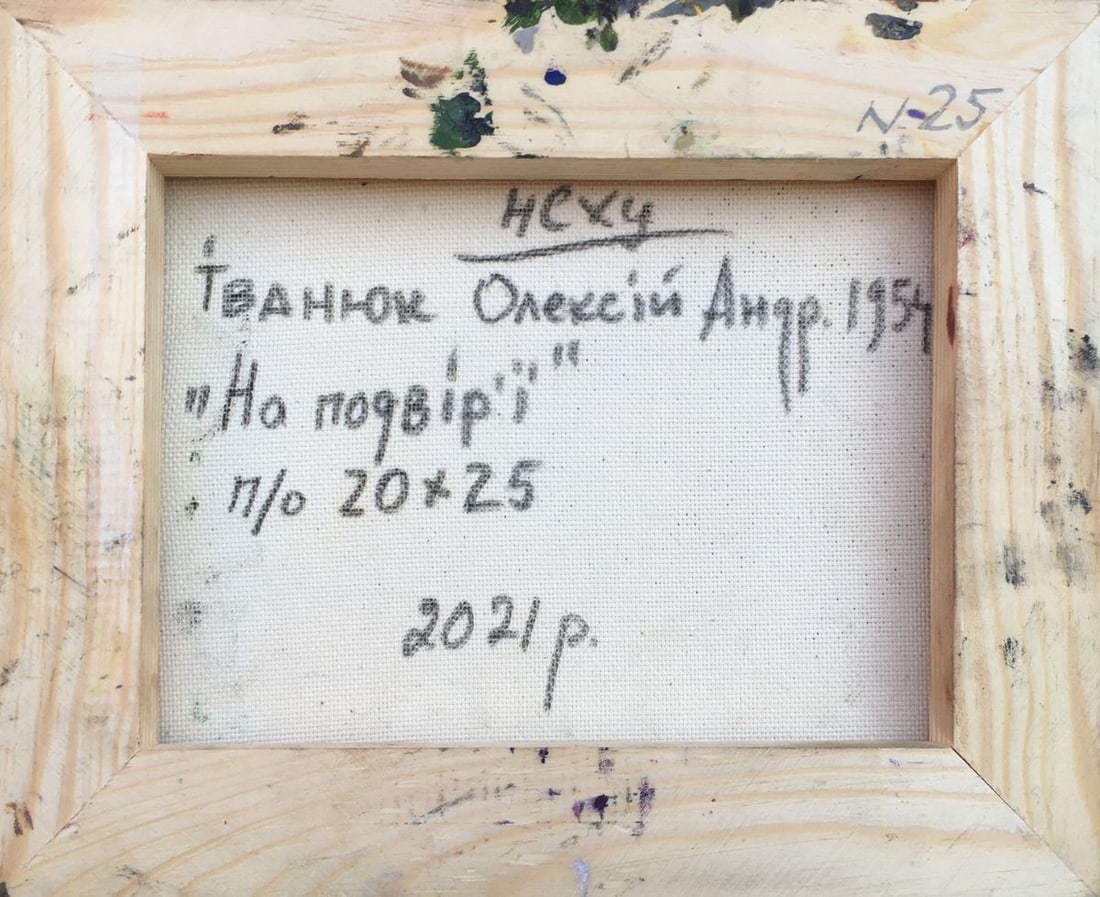 N-25
НСХУ
Іванюк Олексій Андр. 1954
"На подвір'ї"
п/о 20x25
2021 р.